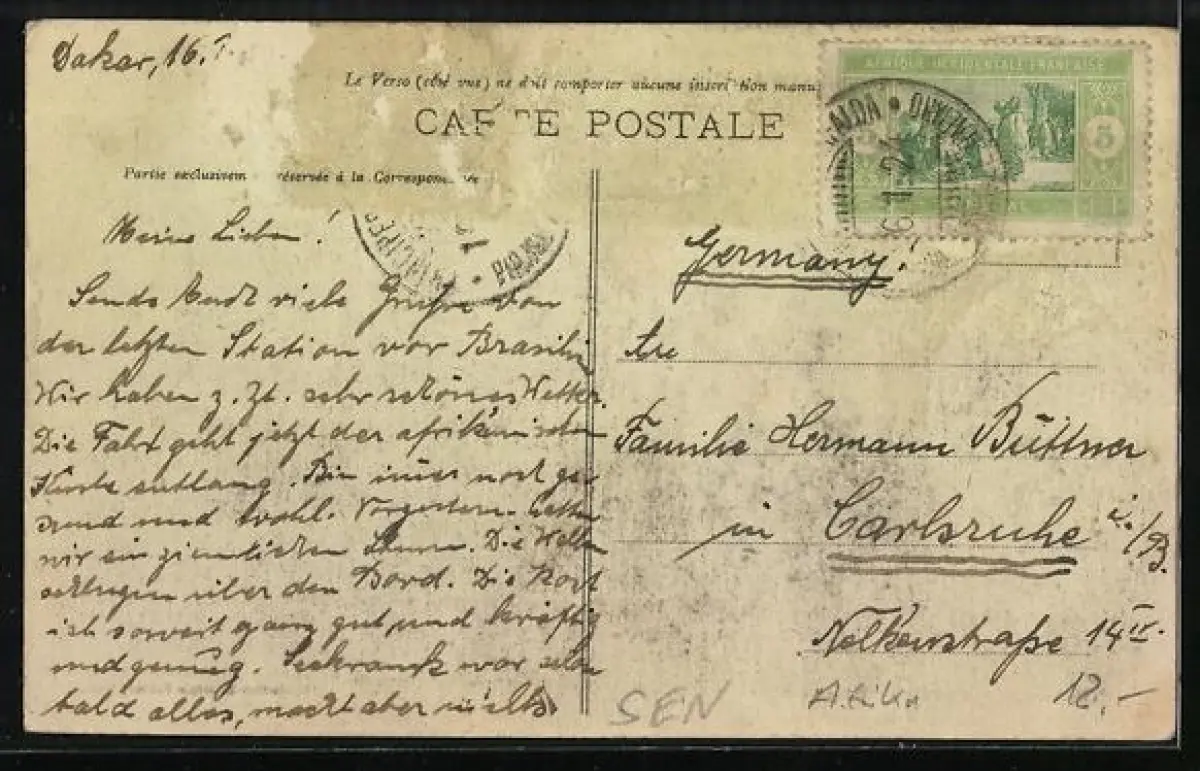 Dakar, 16. I.
Le Verso (côté vue) ne doit comporter aucune inscription manu
CARTE POSTALE
Partie exclusivem réservée à la Correspondance
AFRIQUE OCCIDENTALE FRANÇAISE
5
Meine Lieben!
Sende Euch viele Grüße von
der letzten Station vor Brasilien
Wir haben z. Zt. sehr schönes Wetter.
Die Fahrt geht jetzt der afrikanischen
Küste entlang. Bin immer noch ge-
sund und wohl. Vorgestern hatten
wir ein ziemlichen Sturm. Die Wellen
schlugen über den Bord. Die Kost
ist soweit ganz gut, und kräftig
und genug. Seekrank war schon
bald alles, macht aber nichts.
Germany!
Familie Hermann Büttner
in Carlsruhe i./B.
Nelkenstraße 14 IV.
SEN
Afrika
12.-